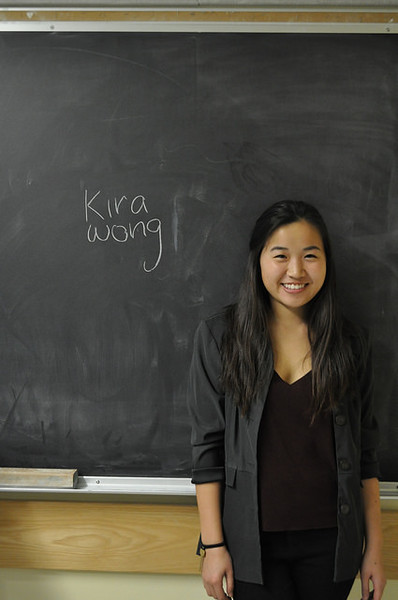 Kira
wong